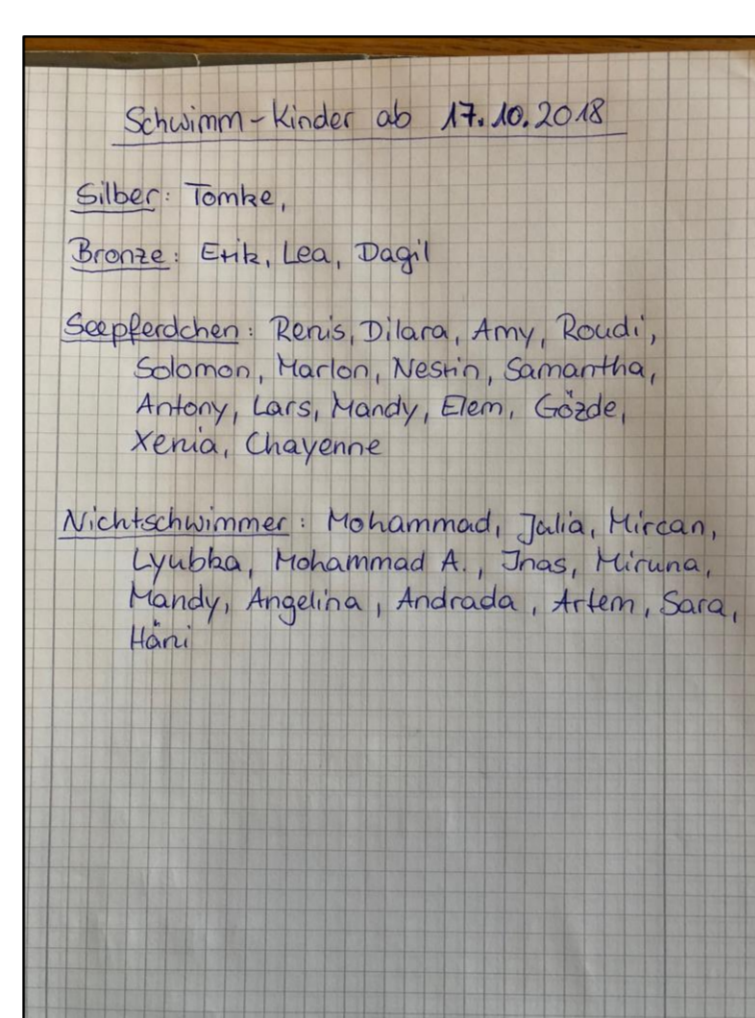 Schwimm-Kinder ab 17.10.2018
Silber: Tomke,
Bronze: Erik, Lea, Dagil
Seepferdchen: Renis, Dilara, Amy, Roudi,
Solomon, Marlon, Nesrin, Samantha,
Antony, Lars, Mandy, Elem, Gözde,
Xenia, Chayenne
Nichtschwimmer: Mohammad, Julia, Mircan,
Lyubka, Mohammad A., Inas, Miruna,
Mandy, Angelina, Andrada, Artem, Sara,
Häni